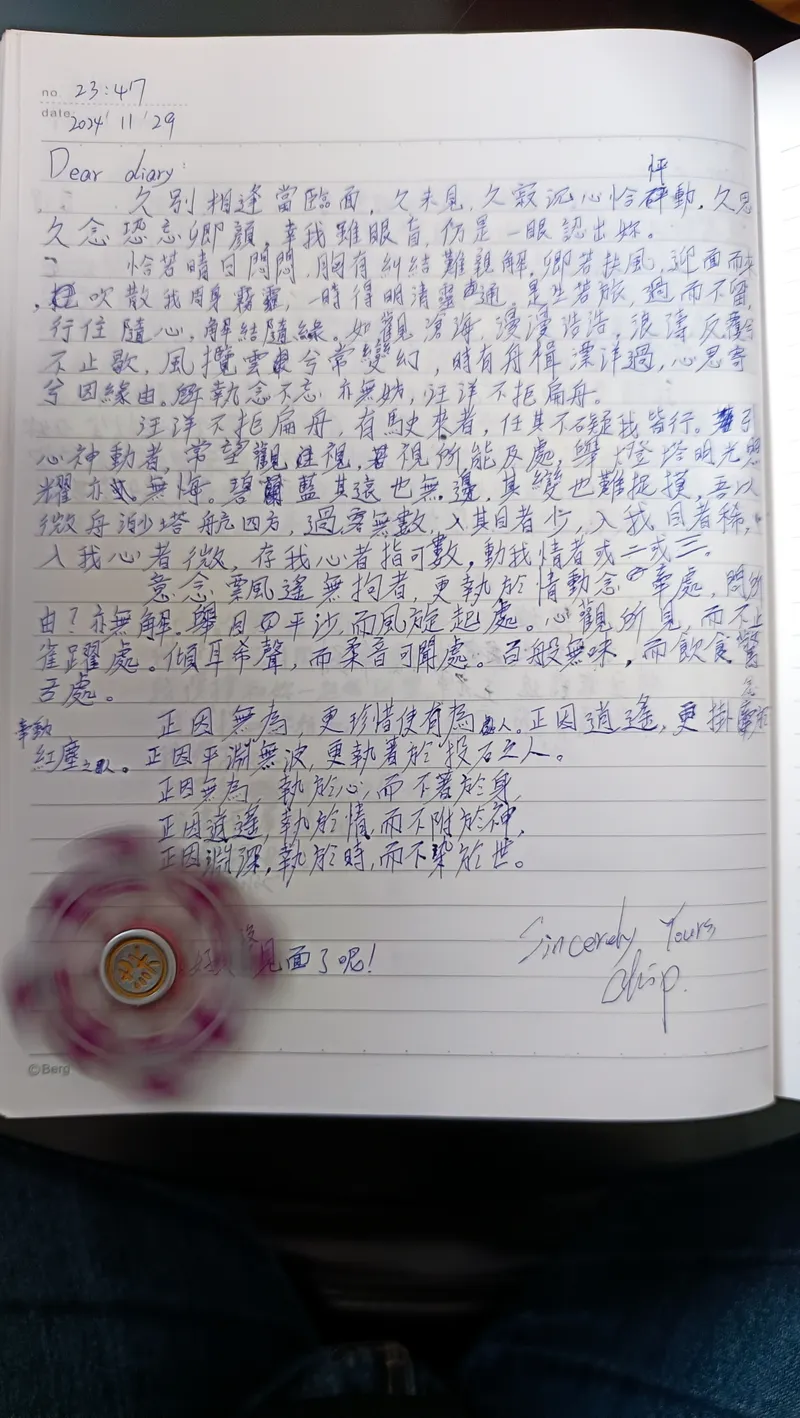 no. 23:47
date 2024 11/29
Dear diary:
久別相逢當臨面,久未見,久寂沉心恰怦動,久思
久念恐忘卿顏,幸我雖眼盲,仍是一眼認出妳。
恰若晴日悶悶,胸有糾結難親解,卿若扶風,迎面而來
吹散我周身霧靈,一時得明清靈通,是生若旅,過而不留,
行住隨心,解結隨緣。如觀滄海,漫漫浩浩,浪濤反覆
不止歇,風攬雲兮常變幻,時有舟楫漂洋過,心思寄
兮因緣由。執念不忘亦無妨,汪洋不拒扁舟。
汪洋不拒扁舟,有駛來者,任其不礙我皆行。引
心神動者,常望觀注視,若視所能及處,舉燈塔明光照
耀亦無悔。碧藍其遠也無邊,其變也難捉摸,吾以
微舟渺塔航四方,過客無數,入其目者少,入我目者稀,
入我心者微,存我心者指可數,動我情者或二或三。
意念飄風遙無拘者,更執於情動念牽處,問所
由?亦無解。舉目四平沙,而風旋起處。心觀所見,而不止
雀躍處。傾耳希聲,而柔音可聞處。百般無味,而飲食
舌處。
正因無為,更珍惜使有為人。正因逍遙,更掛
牽動
紅塵之人。正因平淵無波,更執著於投石之人。
正因無為,執於心,而不著於身,
正因逍遙,執於情,而不附於神,
正因淵深,執於時,而不染於世。
見面了呢!
Sincerely Yours,
Chip.
©Berg